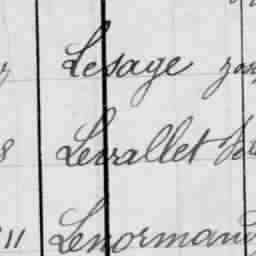 Lesage
8 Levallet
11 Lenormand